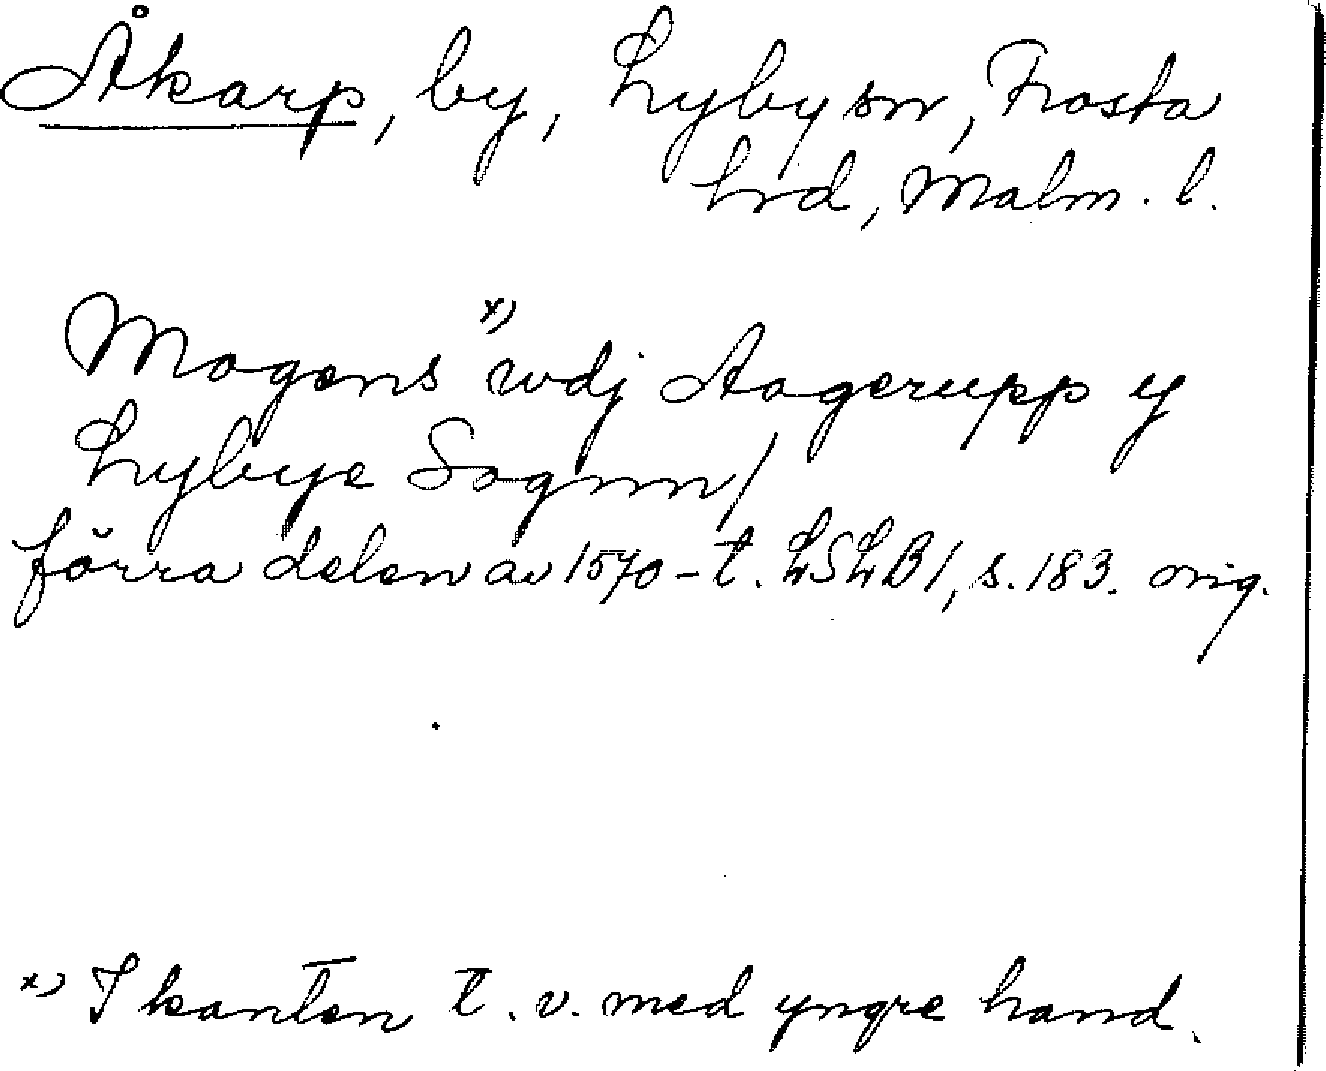 Åkarp, by, Lyby sn, Frosta
hrd, Malm. l.
Mogens x) wdj Aagerupp y
Lybye Sognn/
förra delen av 1570-t. LSLB1, s. 183. orig.
x) I kanten t. v. med yngre hand.